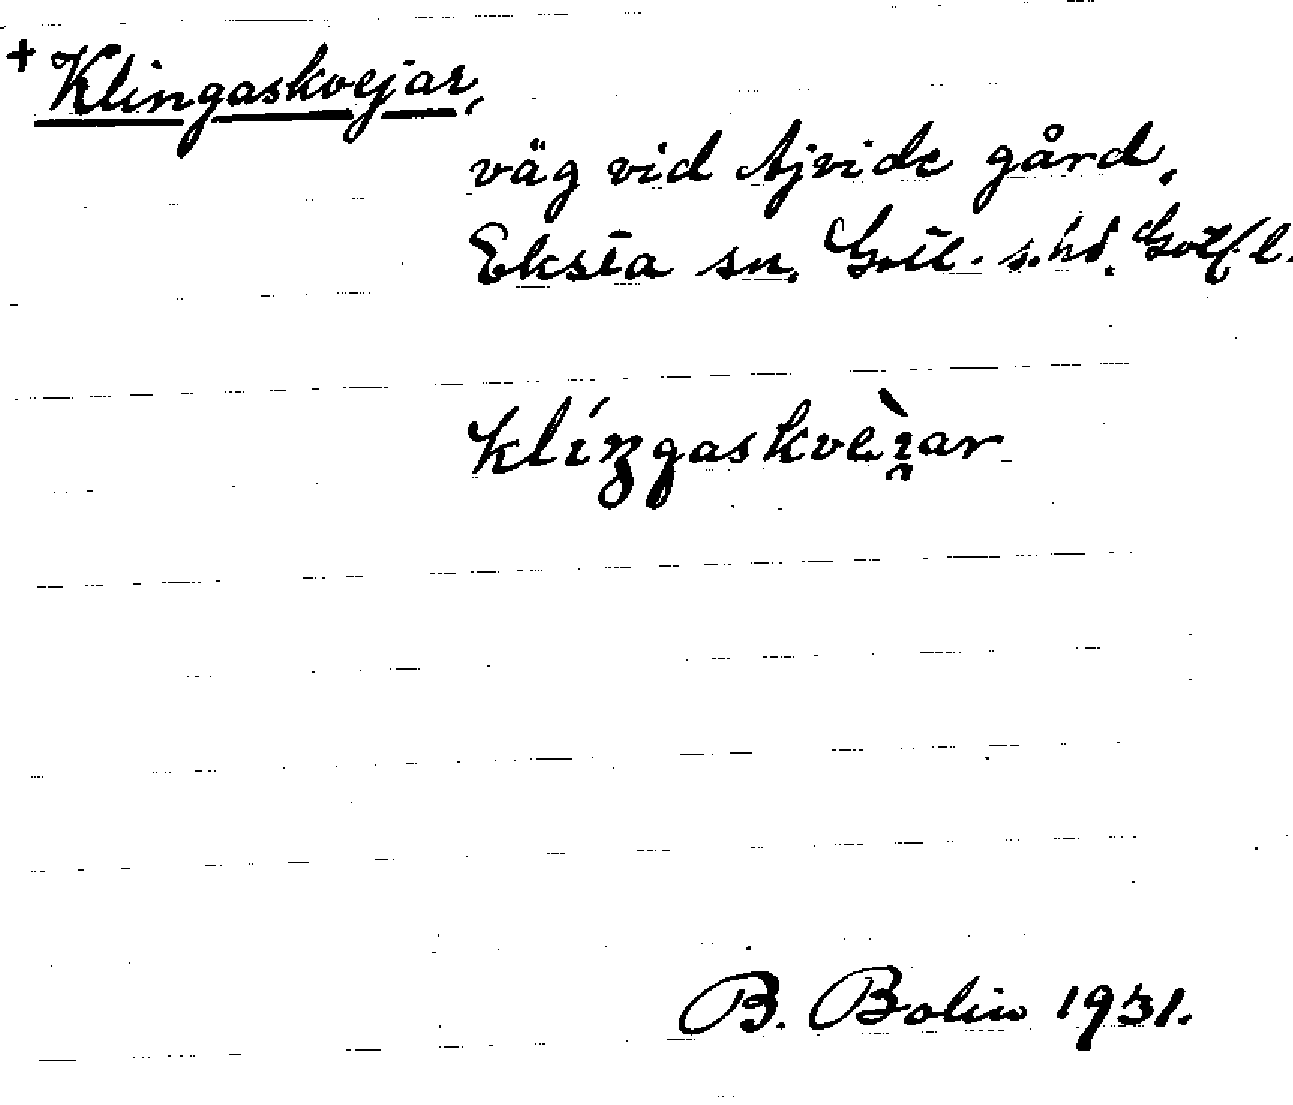 + Klingaskvejar,
väg vid Ajvide gård,
Eksta sn. Gotl. s. hd. Gotl. l.
klíŋgaskveì̯ar
B. Bolin 1931.